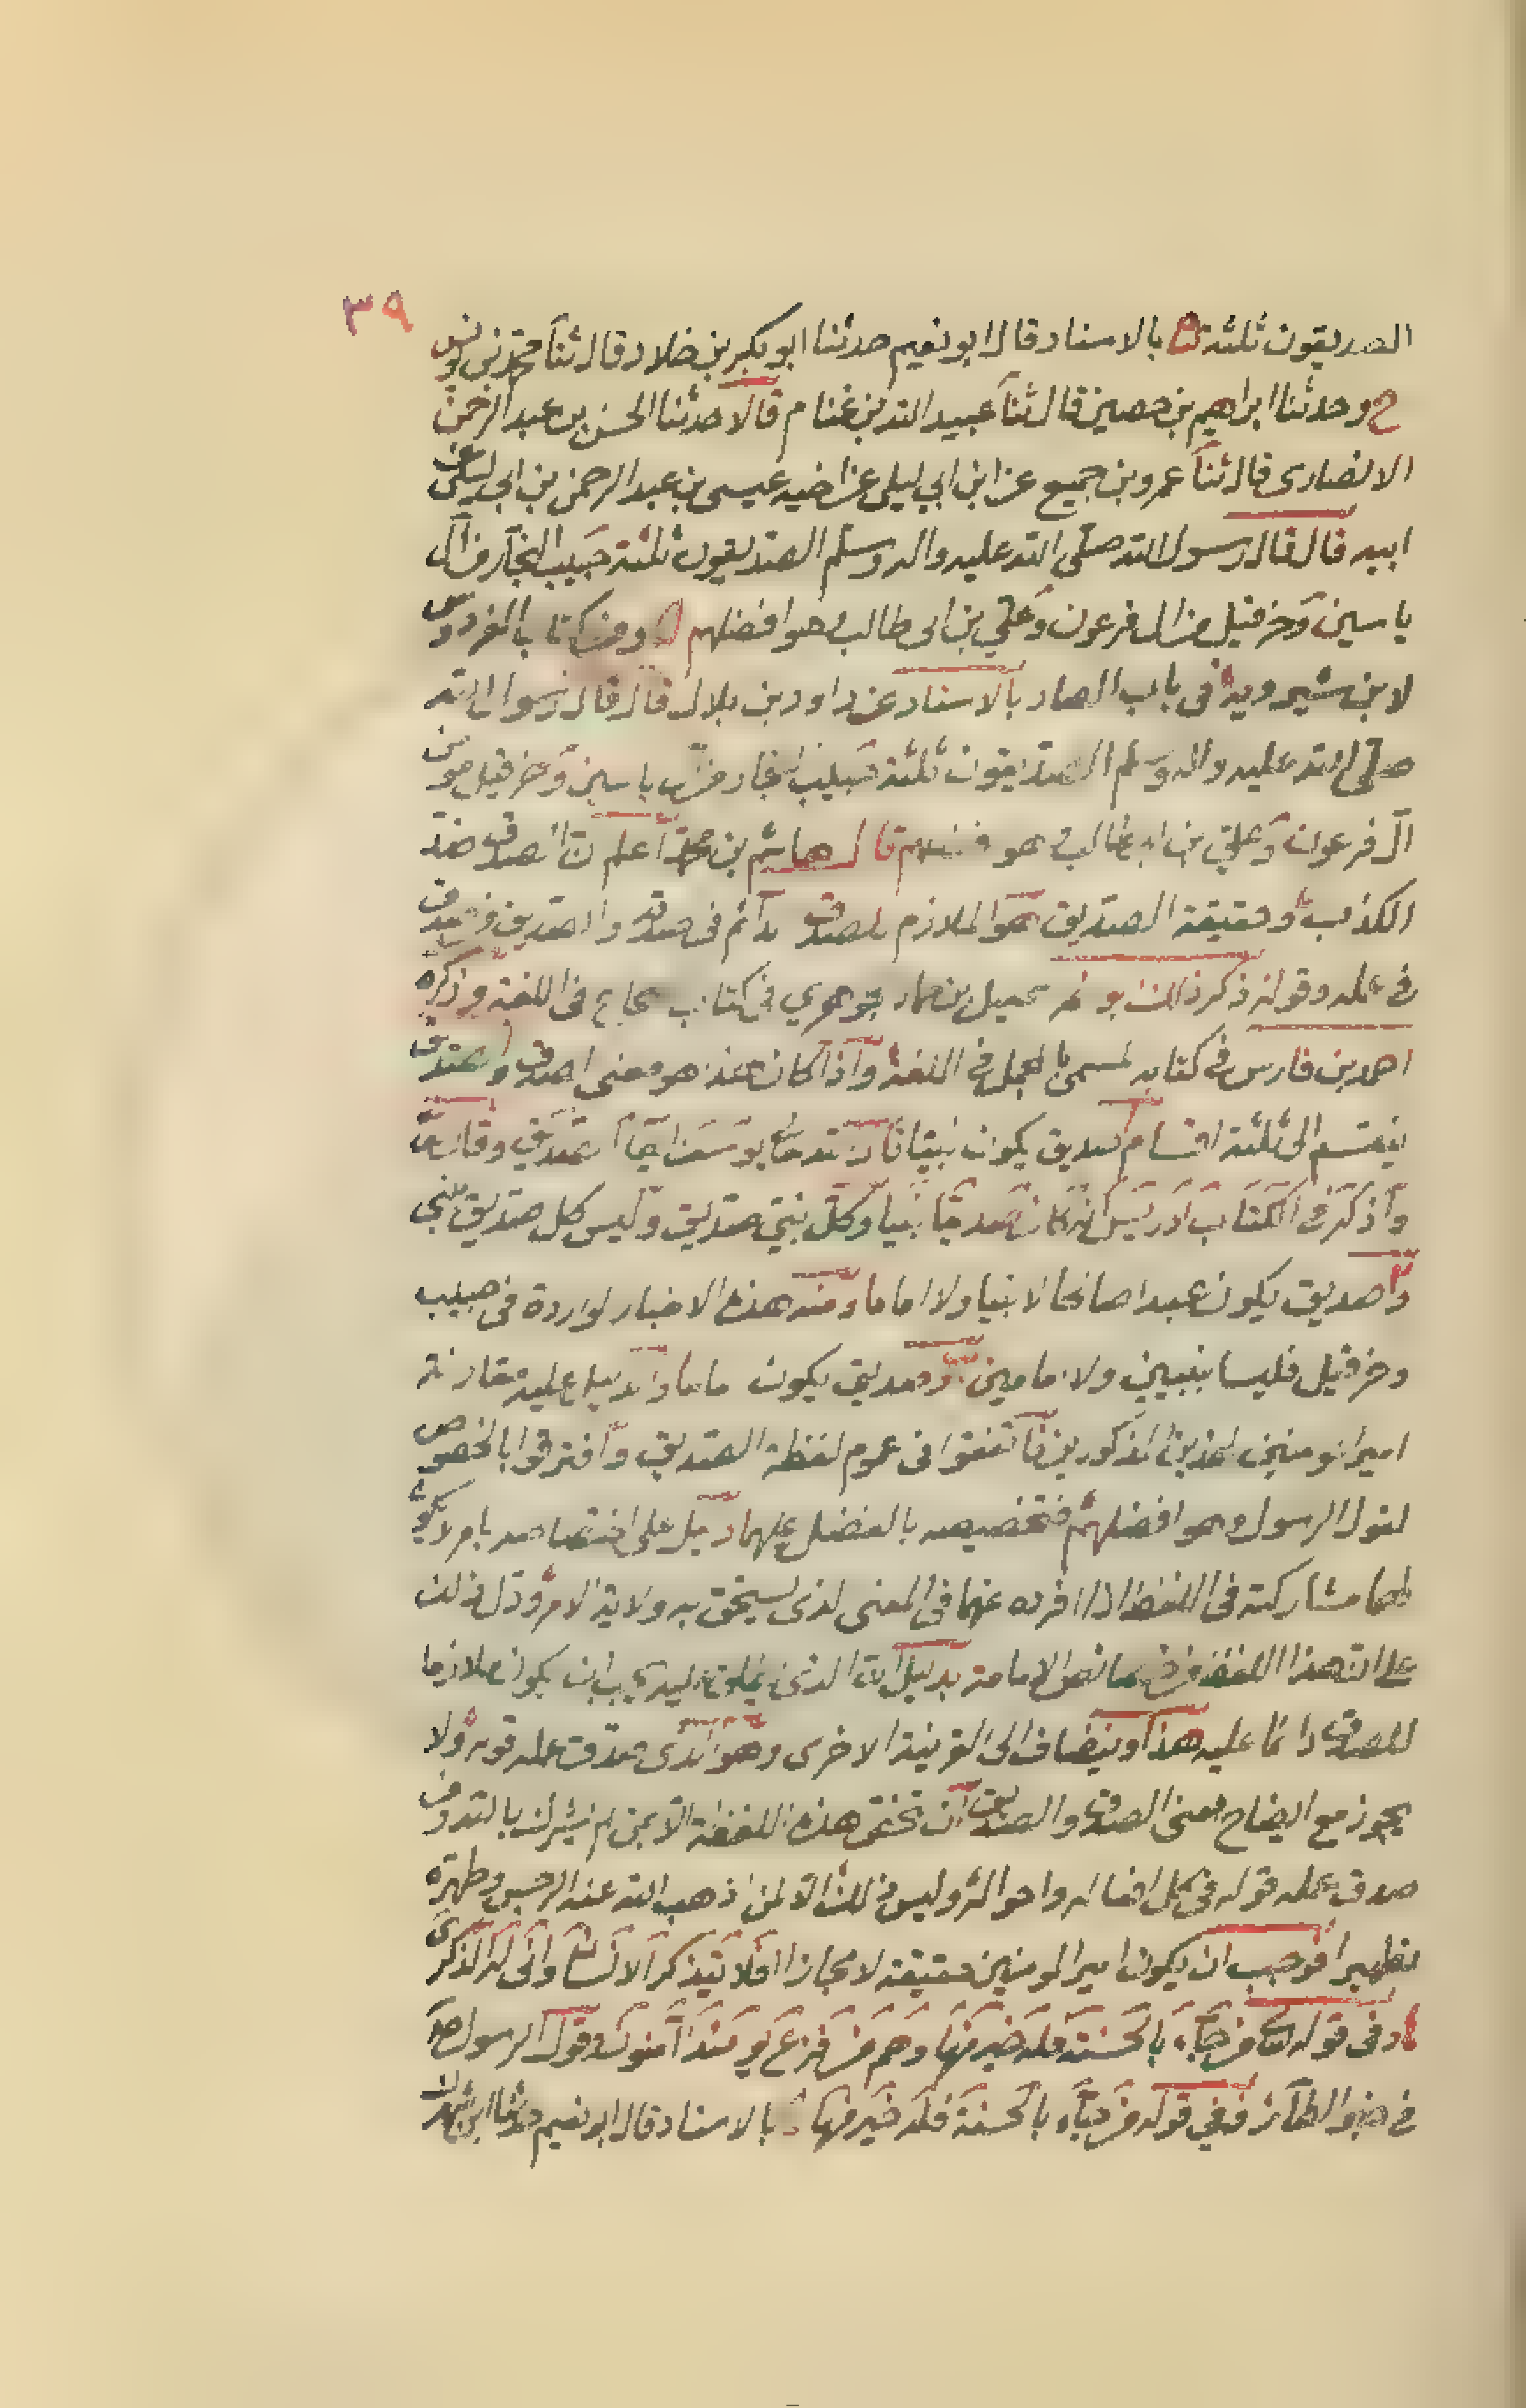 ٣٩
الصديقون ثلثة بالاسناد قال ابو نعيم حدثنا ابو بكر بن خلاد قال ثنا محمد بن يونس
ح وحدثنا ابراهيم بن حصين قال ثنا عبيد الله بن غنام قالا حدثنا الحسن بن عبد الرحمن
الانصارى قال ثنا عمرو بن جميع عن ابن ابي ليلى عن اخيه عيسى بن عبد الرحمن بن ابي ليلى عن
ابيه قال قال رسول الله صلى الله عليه واله وسلم الصديقون ثلثة حبيب النجار من آل
ياسين وحزقيل من ال فرعون وعلي بن ابى طالب وهو افضلهم ومن كتاب الفردوس
لابن شيرويه فى باب الصاد بالاسناد عن داود بن بلال قال قال رسول الله
صلى الله عليه واله وسلم الصديقون ثلثة حبيب النجار من آل ياسين وحزقيل مومن
آل فرعون وعلي بن ابى طالب وهو افضلهم قال هاشم بن محمد اعلم ان الصدق ضد
الكذب وحقيقة الصديق هو الملازم للصدق الدائم فى صدقه والصديق من صدق
فى عمله وقوله ذكر ذلك ابو نصر اسمعيل بن حماد الجوهري فى كتاب الصحاح فى اللغة وذكره
احمد بن فارس فى كتابه المسمى بالمجمل فى اللغة واذا كان هذا هو معنى الصدق والصديق
ينقسم الى ثلثة اقسام صديق يكون نبيا قال الله تعالى يوسف ايها الصديق وقال تعالى
واذكر فى الكتاب ادريس انه كان صديقا نبيا وكل نبي صديق وليس كل صديق نبي
وصديق يكون عبدا صالحا لا نبيا ولا اماما ومنه هذه الاخبار الواردة فى حبيب
وحزقيل فليسا بنبيين ولا امامين وصديق يكون اماما والدليل عليه مقارنة
امير المومنين لهذين المذكورين فاتفقوا فى عموم لفظة الصديق وافترقوا بالخصوص
لقول الرسول وهو افضلهم فتخصيصه بالفضل عليهما دليل على اختصاصه بامر لا يكون
لهما مشاركته فى اللفظ افرده عنهما فى المعنى الذى يستحق به ولاية الامر ودل ذلك
على ان هذا اللفظ من خصائص الامامة بدليل ان الذى يطلق عليه يجب ان يكون ملازما
للصدق دائما عليه هذا وينضاف الى القرينة الاخرى وهو الذى صدق عمله قوله ولا
يجوز مع ايضاح معنى الصدق والصديق ان تختص هذه اللفظة الا بمن لم يشرك بالله ومن
صدق عمله قوله فى كل افعاله واحواله وليس ذلك الا لمن اذهب الله عنه الرجس وطهره
تطهيرا فوجب ان يكون امير المومنين حقيقة لا مجازا افلا يتذكر الانسان وانى له الذكرى
وفى قوله تعالى من جاء بالحسنة فله خير منها وهم من فزع يومئذ آمنون وقول الرسول ص
فى خبر الطائر ففي قوله من جاء بالحسنة فله خير منها بالاسناد قال ابو نعيم حدثنا ابن شريك